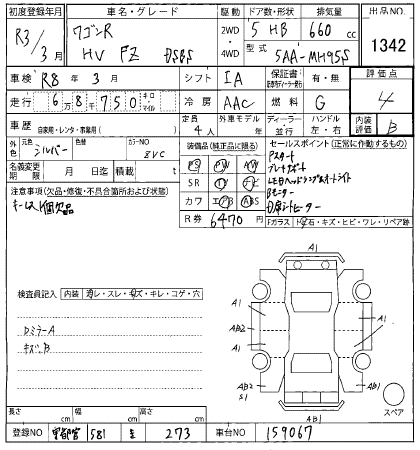 初度登録年月 車名・グレード 駆動 ドア数・形状 排気量 出品NO.
R3/3月 ワゴンR HV FZ DSBS 2WD・4WD 5 HB 660 cc 1342
型式 5AA-MH95S
車検 R8年 3月 シフト IA 保証書 有・無 評価点 4
走行 6万8千750 キロ・マイル 冷房 AAC 燃料 G
車歴 自家用・レンタ・事業用( ) 定員 4人 外車モデル 年 ディーラー・並行 ハンドル 左・右 内装評価 B
外色 元色 シルバー 色 カラーNO ZVC
名義変更期限 月 日迄 積載 t
装備品(純正品に限る)
PS PW AW
SR TV ナビ
カワ エアB ABS
R券 6470円
セールスポイント(正常に作動するもの)
Pスタート
ブレーキサポート
LEDヘッドランプ&オートライト
D席シートヒーター
注意事項(欠品・修復・不具合箇所および状態)
キーレス1個欠品
Fガラス トビ石・キズ・ヒビ・ワレ・リペア跡
検査員記入 内装 汚レ・スレ・キズ・キレ・コゲ・穴
DミラーA
キズB
A1
A1
AB2
A1
AB2
S1
A1
AB1
AB1
スペア
長さ cm 幅 cm 高さ cm
登録NO 宇都宮 581 273 車台NO 159067